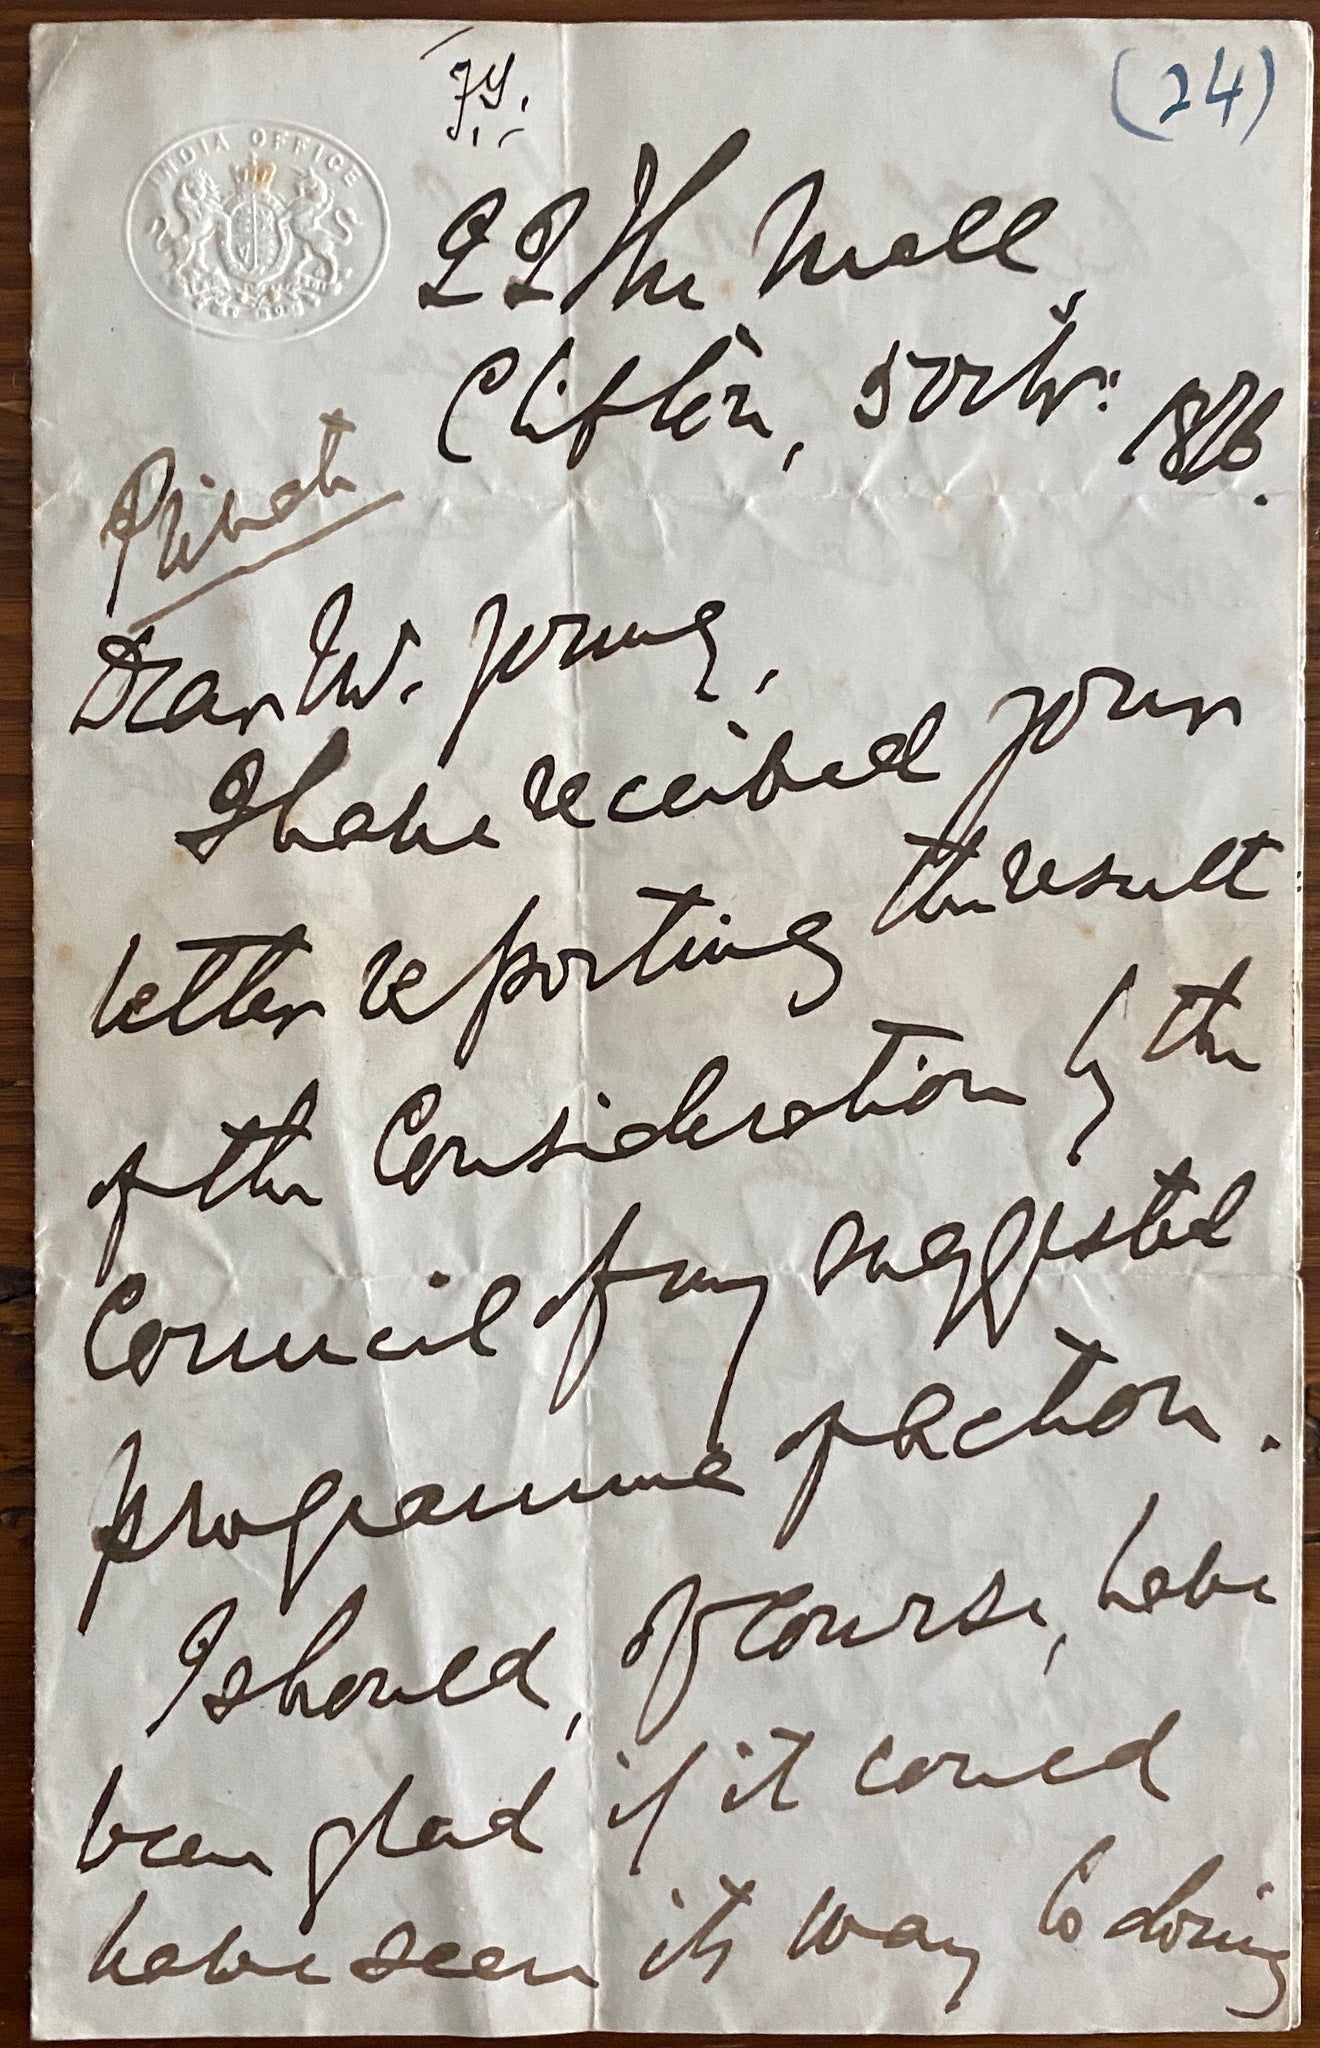 (24)
INDIA OFFICE
22 The Mall,
Clifton, 5 Octbr: 1876.
Private
Dear Mr. Young,
I have received your
letter reporting the result
of the Consideration by the
Council of my suggested
programme of action.
I should, of course, have
been glad if it could
have seen its way to doing